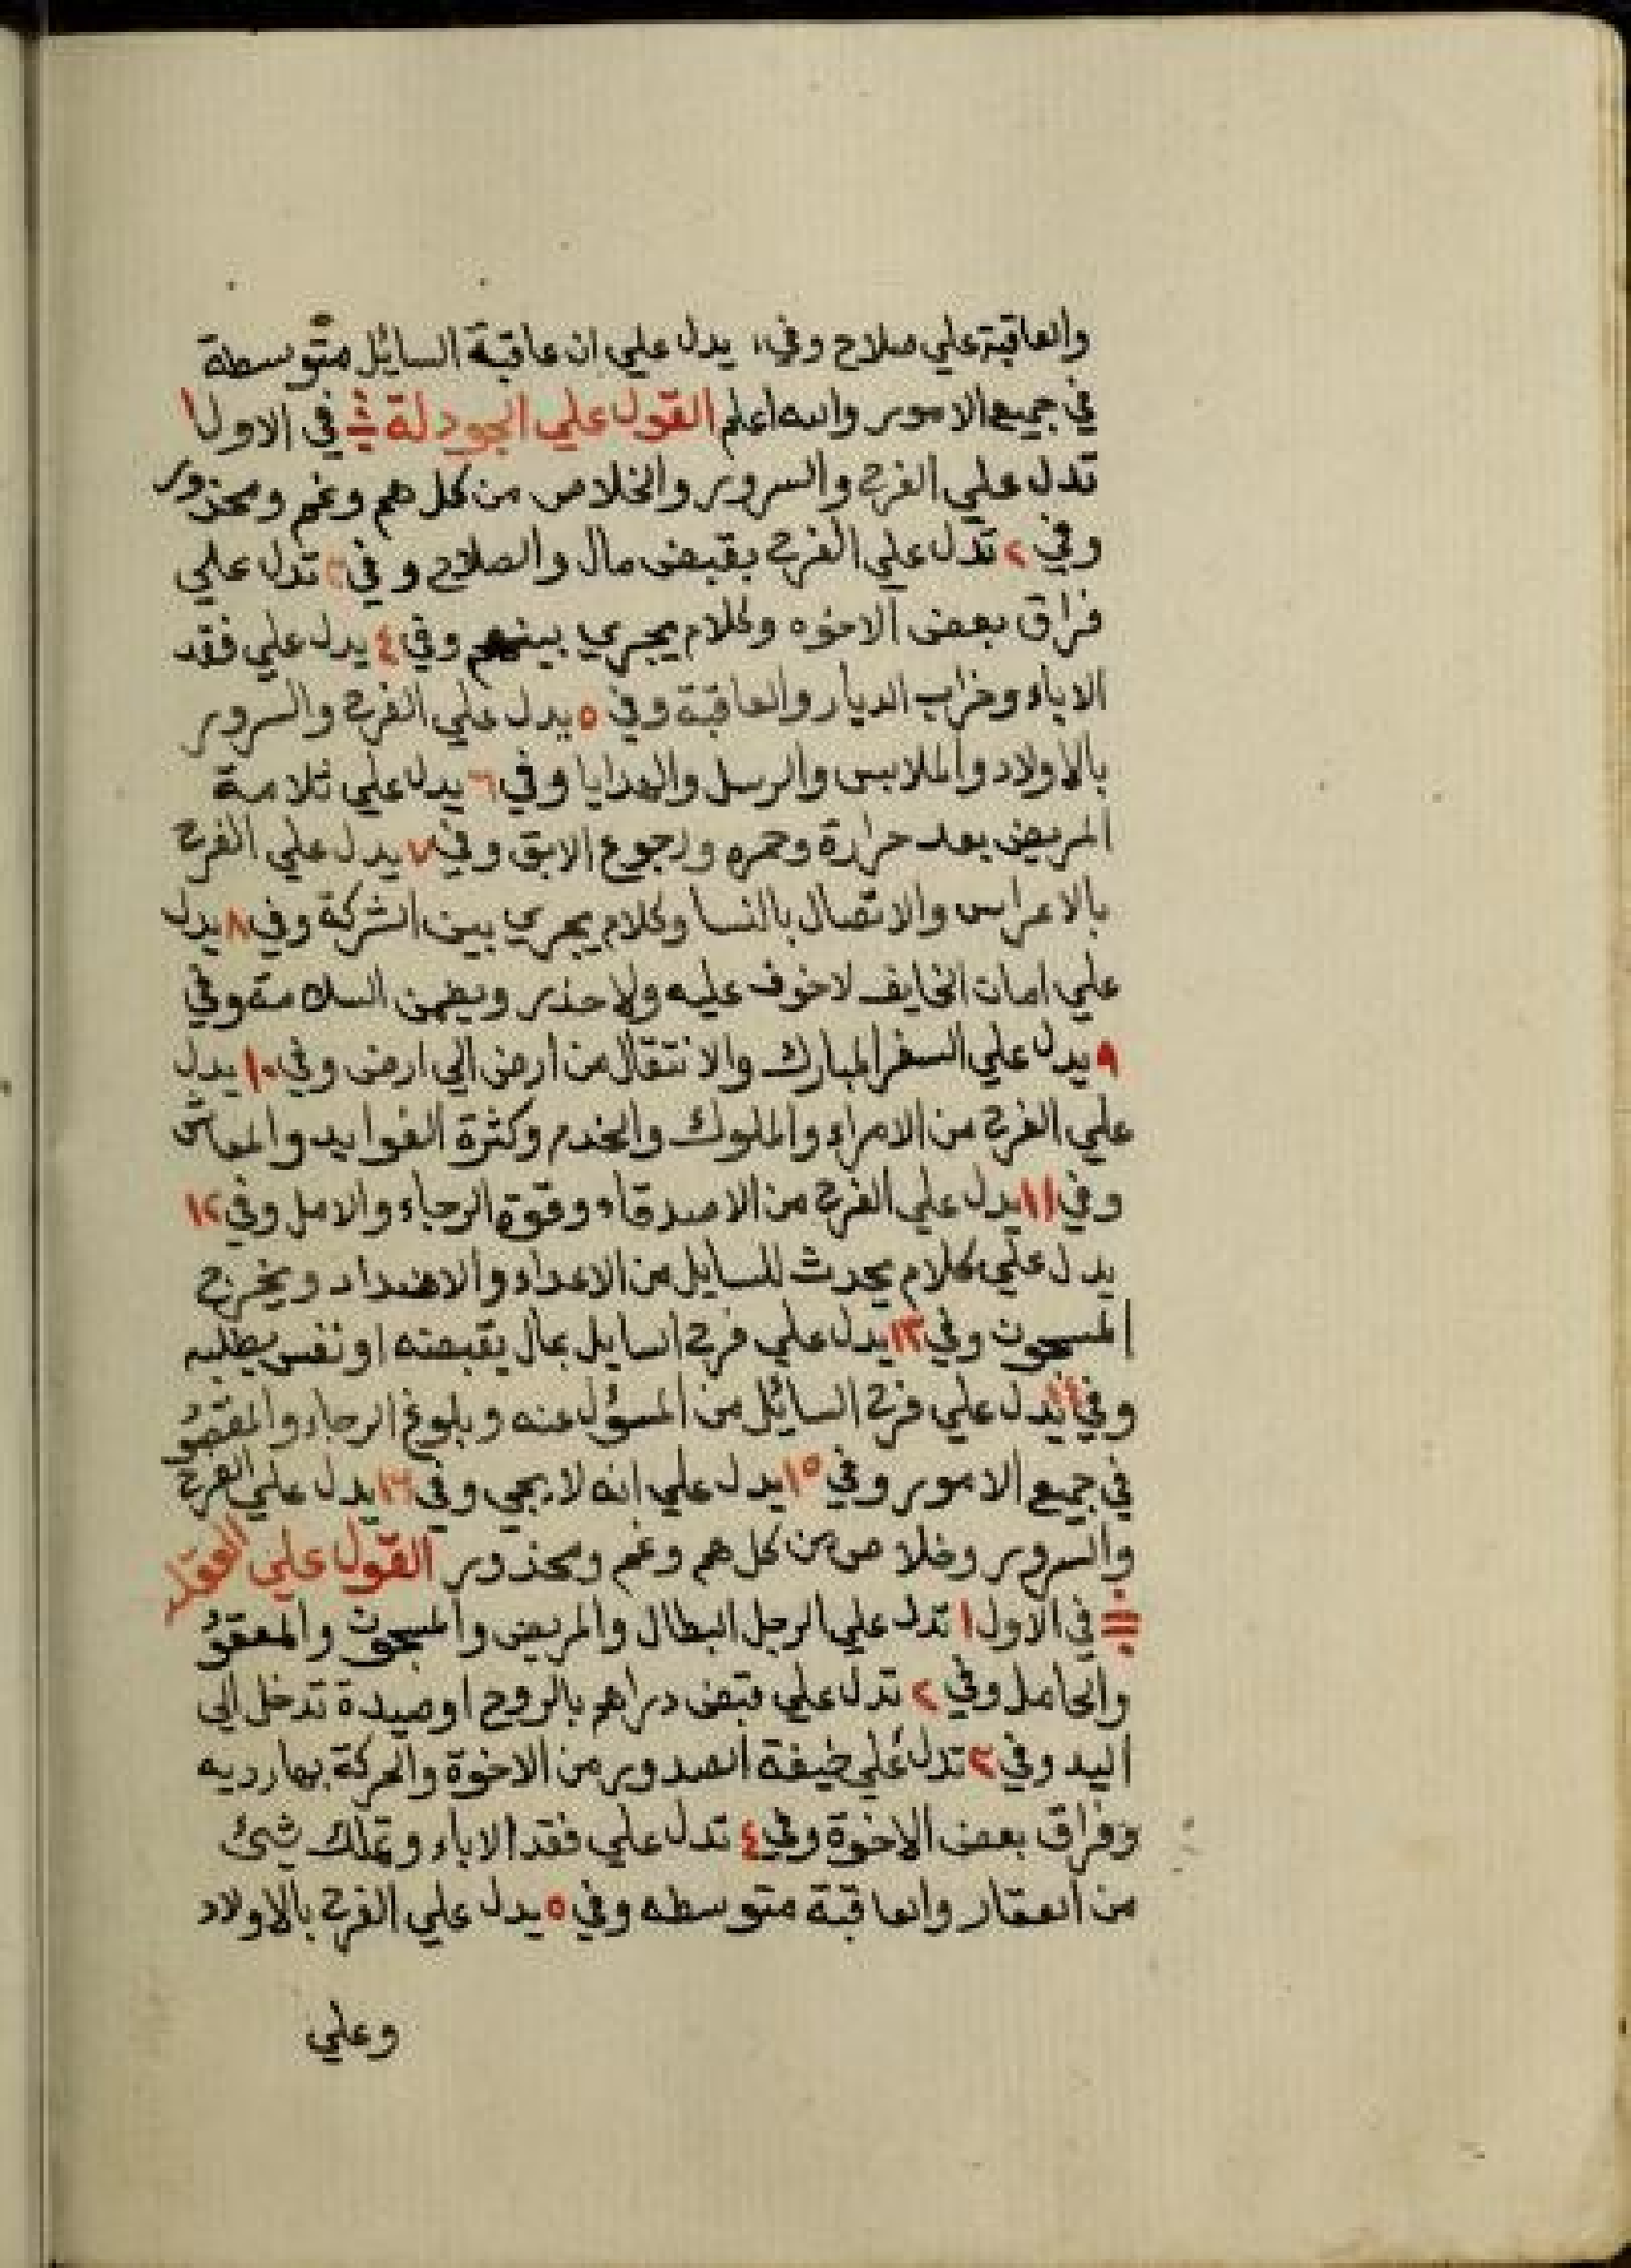 والعاقبة علي صلاح وفي يدل علي ان عاقبة السائل متوسطة
في جميع الامور والله اعلم القول علي الجودلة في الاول ١
تدل علي الفرح والسرور والخلاص من كل هم وغم ومحذور
وفي ٢ تدل علي الفرح بقبض مال والصلاح وفي ٣ تدل علي
فراق بعض الاخوه وكلام يجري بينهم وفي ٤ يدل علي فقد
الاباء وخراب الديار والعاقبة وفي ٥ يدل علي الفرح والسرور
بالاولاد والملابس والرسل والهدايا وفي ٦ يدل علي
المريض بعد حرارة وحمره ورجوع الابق وفي ٧ يدل علي الفرح
بالاعراس والاتصال بالنسا وكلام يجري بين الشركة وفي ٨ يدل
علي امان الخايف لاخوف عليه ولاحذر السلامة وفي
٩ يدل علي السفر المبارك والانتقال من ارض الي ارض وفي ١٠ يدل
علي الفرح من الامراء والملوك والخدم وكثرة الفوايد والمعاش
وفي ١١ يدل علي الفرح من الاصدقاء وقوة الرجاء والامل وفي ١٢
يدل علي كلام يحدث للسايل من الاعداء والاضداد ويخرج
المسجون وفي ١٣ يدل علي فرح السايل بمال يقبضه او نفس يطلبه
وفي ١٤ يدل علي فرح السائل من المسؤل عنه وبلوغ الرجاء والمقصود
في جميع الامور وفي ١٥ يدل علي انه لا يجي وفي ١٦ يدل علي الفرح
والسرور وخلاص من كل هم وغم ومحذور القول علي العقله
في الاول ١ تدل علي الرجل البطال والمريض والمسجون والمعقق
والحامل وفي ٢ تدل علي قبض دراهم بالروح او صيدة تدخل الي
اليد وفي ٣ تدل علي ضيقة الصدور من الاخوة والحركة بهار ديه
وفراق بعض الاخوة وفي ٤ تدل علي فقد الاباء وتملك شئ
من العقار والعاقبة متوسطه وفي ٥ يدل علي الفرح بالاولاد
وعلي